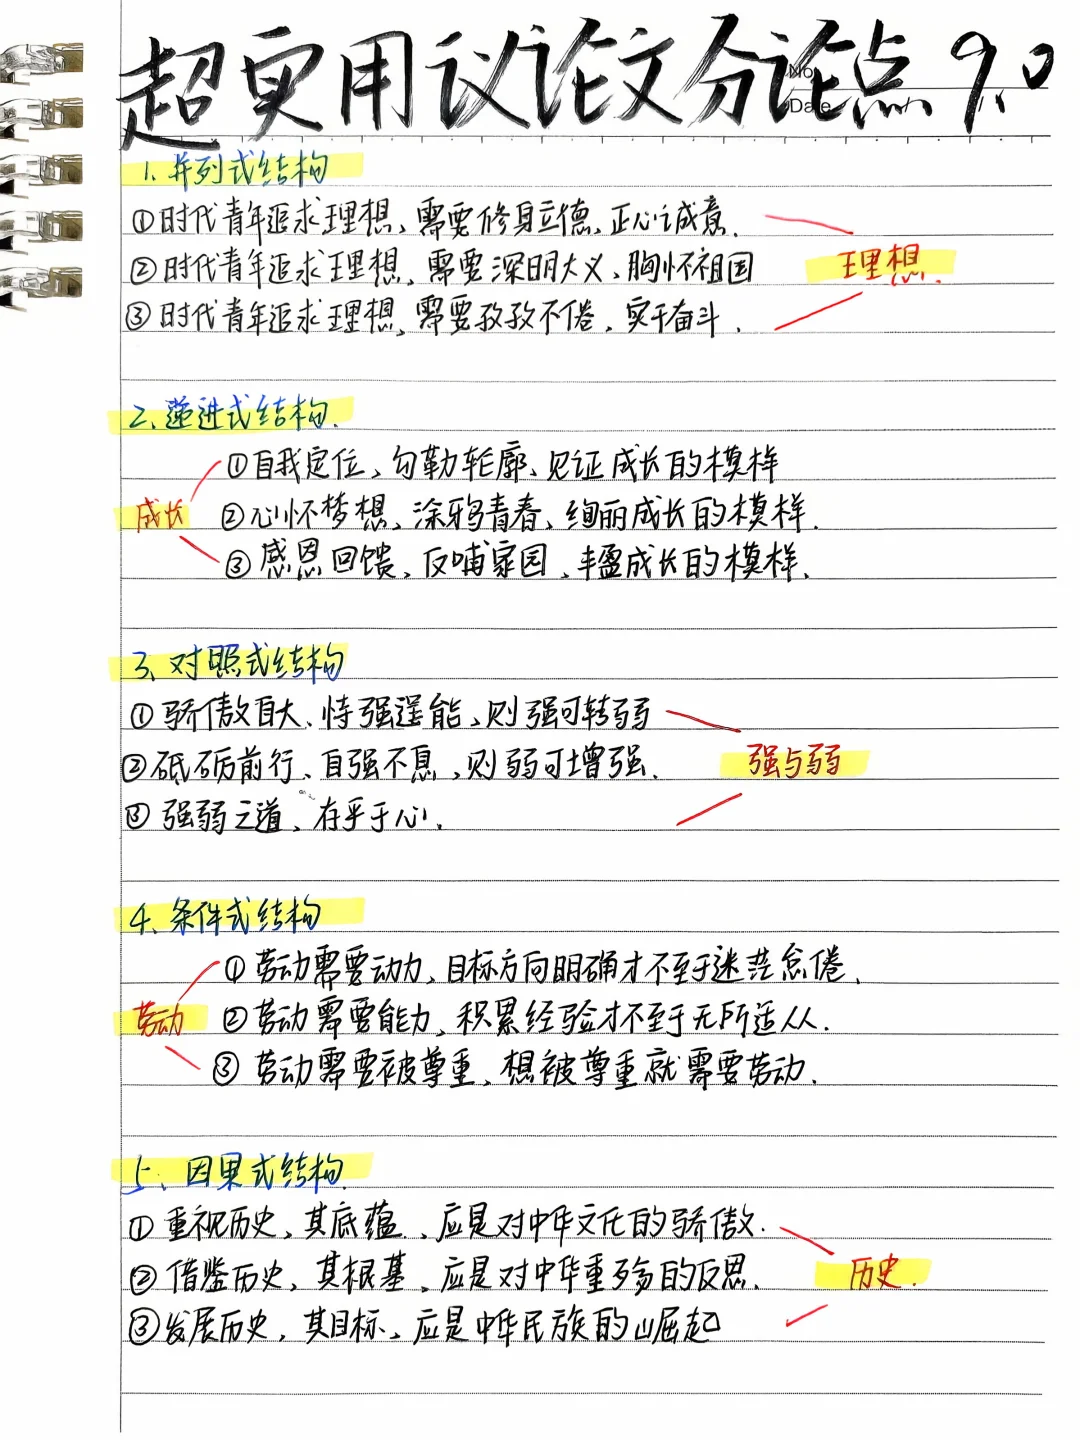 超实用议论文分论点 9.0
No
Date
1. 并列式结构
①时代青年追求理想、需要修身立德、正心诚意.
②时代青年追求理想、需要深明大义、胸怀祖国
理想.
③时代青年追求理想、需要孜孜不倦、实干奋斗.
2、递进式结构.
①自我定位、勾勒轮廓、见证成长的模样
成长
②心怀梦想、涂鸦青春、绚丽成长的模样.
③感恩回馈、反哺家园、丰盈成长的模样.
3、对照式结构
①骄傲自大、恃强逞能、则强可转弱
②砥砺前行、自强不息、则弱可增强.
强与弱
③强弱之道、存乎于心.
4、条件式结构
①劳动需要动力、目标方向明确才不至于迷茫怠倦.
劳动
②劳动需要能力、积累经验才不至于无所适从.
③劳动需要被尊重、想被尊重就需要劳动.
5、因果式结构.
①重视历史、其底蕴、应是对中华文化的骄傲.
②借鉴历史、其根基、应是对中华重殇的反思.
历史.
③发展历史、其目标、应是中华民族的山屈起